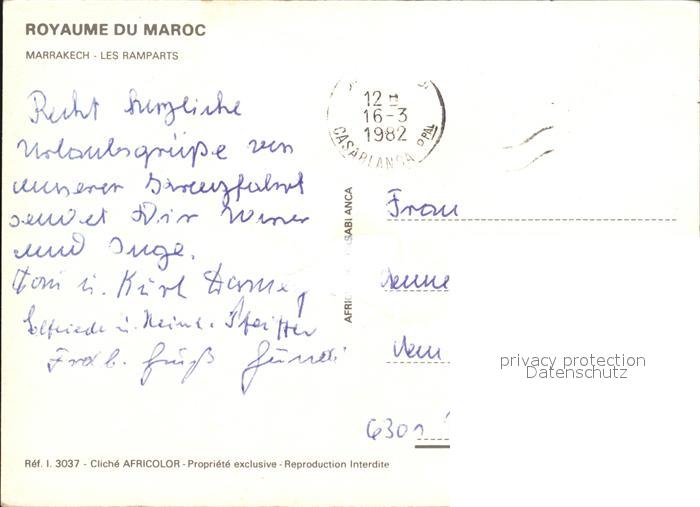 ROYAUME DU MAROC
MARRAKECH - LES RAMPARTS
Recht herzliche
Urlaubsgrüße von
unserer Kreuzfahrt
sendet Dir Werner
und Inge.
Toni u. Kurt
Elfriede u. Heinr. Pfeiffer
Grüß
12 H
16-3
1982
CASABLANCA PPAL
AFRIC CASABLANCA
Frau
Anne
Am
6301
privacy protection
Datenschutz
Réf. I. 3037 - Cliché AFRICOLOR - Propriété exclusive - Reproduction Interdite